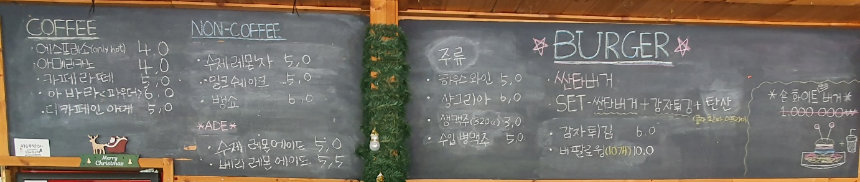 COFFEE
·에스프레소(only hot) 4.0
·아메리카노 4.0
·카페라떼 5.0
·아바라<파우더> 6.0
·디카페인 아메 5.0
NON-COFFEE
·수제 레몬차 5.0
·밀크쉐이크 5.0
·뱅쇼 6.0
*ADE*
·수제 레몬에이드 5.0
·베리 레몬에이드 5.5
Merry Christmas
주류
·하우스와인 5.0
·샹그리아 6.0
·생맥주 3.0
·수입병맥주 5.0
☆BURGER☆
·싼타버거
SET-싼타버거+감자튀김+탄산
·감자튀김 6.0
·버팔로윙(10개) 10.0
*손 화이트버거*
1.000.000₩